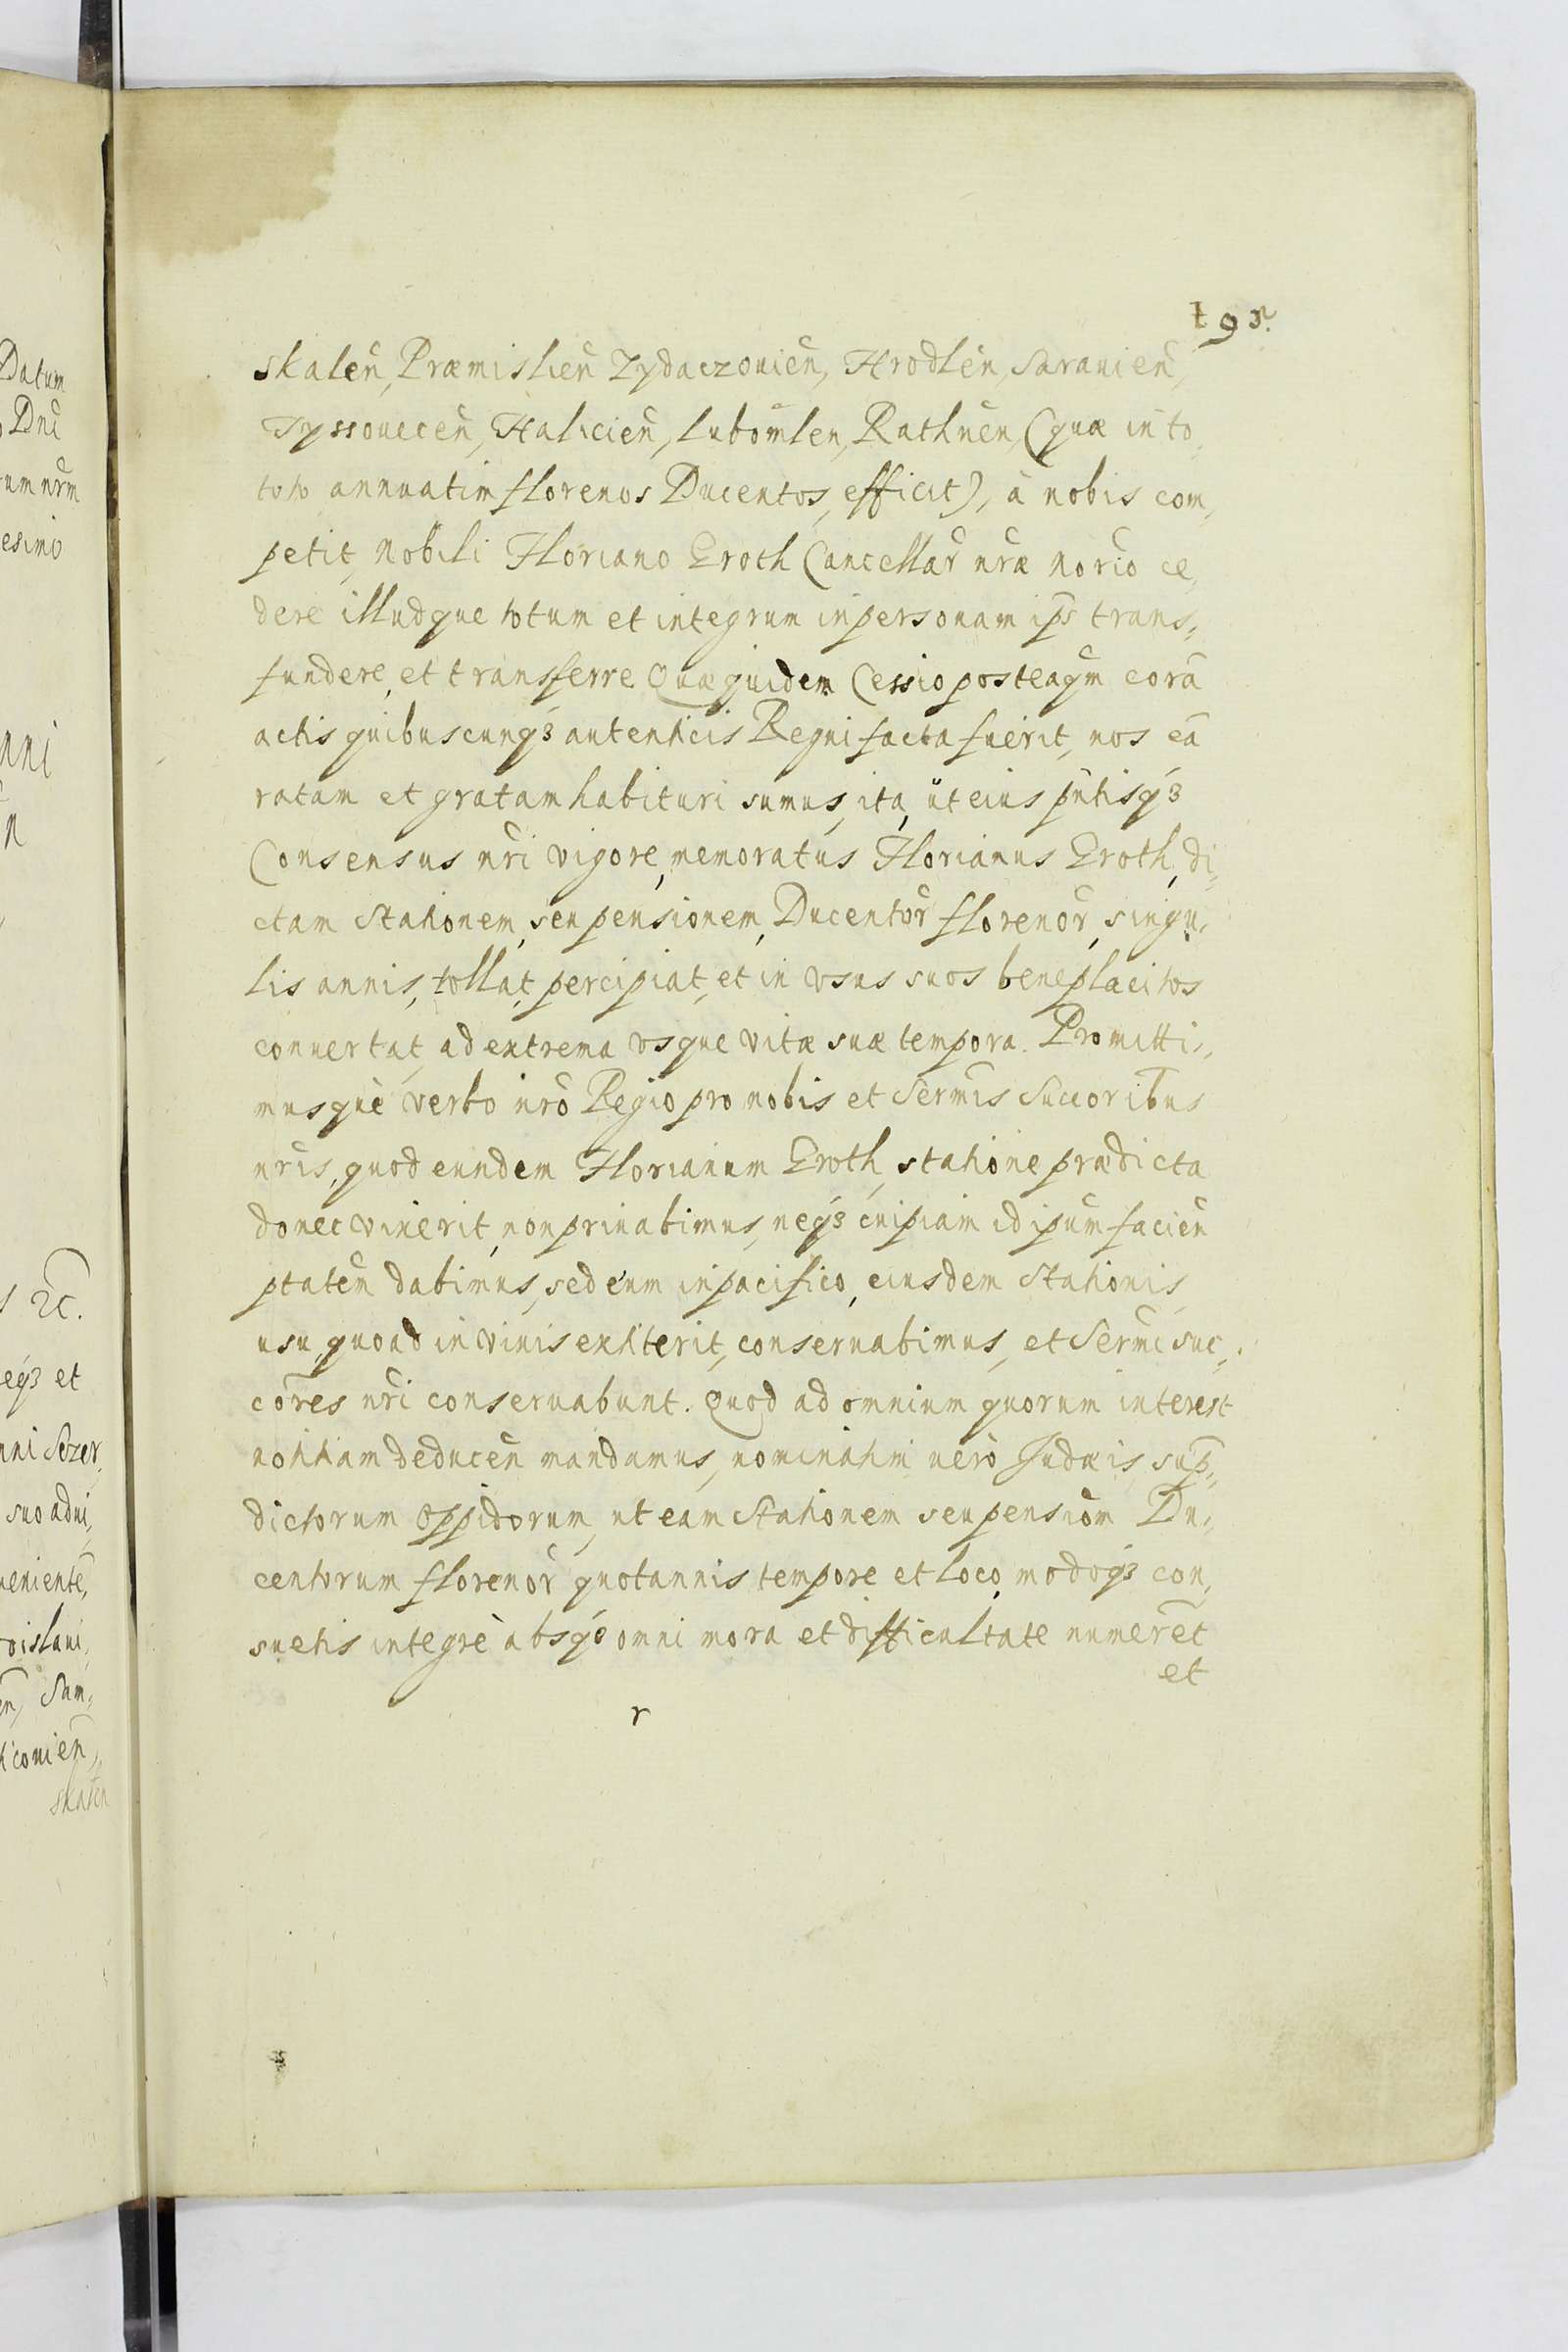 195.
skaleñ, Præmislieñ Zydaczouieñ, Hrodleñ, Sarauieñ,
Tyssoueceñ, Halicieñ, lubomlen, Rathnen, (quæ in to,
toto annuatim florenos Ducentos, efficit), à nobis com,
petit, nobili Floriano Eroth Cancellar nræ norio ce,
dere illudque totum et integrum in personam ips trans,
fundere, et transferre. Quæ quidem Cessio posteaqm corã
actis quibuscunqz autenticis Regni facta fuerit, nos eã
ratam et gratam habituri sumus, ita, ut eius pntisqz
Consensus nri vigore, memoratus Florianus Eroth, di,
ctam Stationem, seu pensionem, Ducentor florenor, singu,
lis annis, tollat, percipiat, et in vsus suos beneplacitos
conuertat, ad extrema vsque vitæ suæ tempora. Promitti,
musquè verbo nrõ Regio pro nobis et Sermis Succoribus
nris, quod eundem Florianum Eroth, statione prædicta
donec vixerit, non priuabimus, neqz cuipiam id ipum facieñ
ptatem dabimus, sed eum in pacifico, eiusdem Stationis,
usu, quoad in viuis extiterit, conseruabimus, et Sermi suc,
cores nri conseruabunt. Quod ad omnium quorum interest
notitiam deduceñ mandamus, nominatim uerò Judæis, sup,
dictorum oppidorum, ut eam Stationem seu pensiom Du,
centorum florenor quotannis tempore et loco, modoqz con,
suetis integrè absqз omni mora et difficultate numeret
et
r
Datum
Dni
um nrm
esimo
nni
n
s 2c.
eqz et
nni Sezer
suo adui,
ueniente,
oislaui,
en, Sam,
couieñ,
skalen